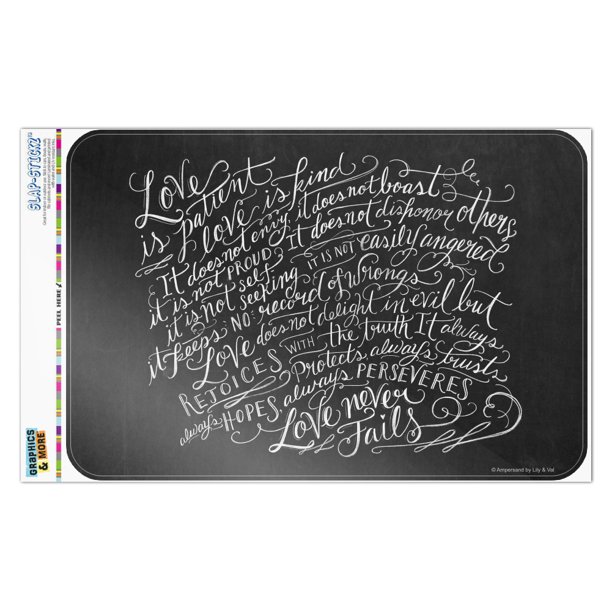 Love
is patient
love is kind
It does not envy, it does not boast
it is not PROUD It does not dishonor others,
it is not self
seeking IT IS NOT easily angered
it keeps NO record of wrongs
Love does not delight in evil but
REJOICES WITH the truth It always
Protects, always trusts
always HOPES, always PERSEVERES
Love never
Fails
© Ampersand by Lily & Val
SLAP-STICKZ
PEEL HERE
GRAPHICS
& MORE